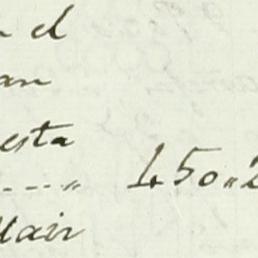 n el
an
esta
....„ 450„2
Mair